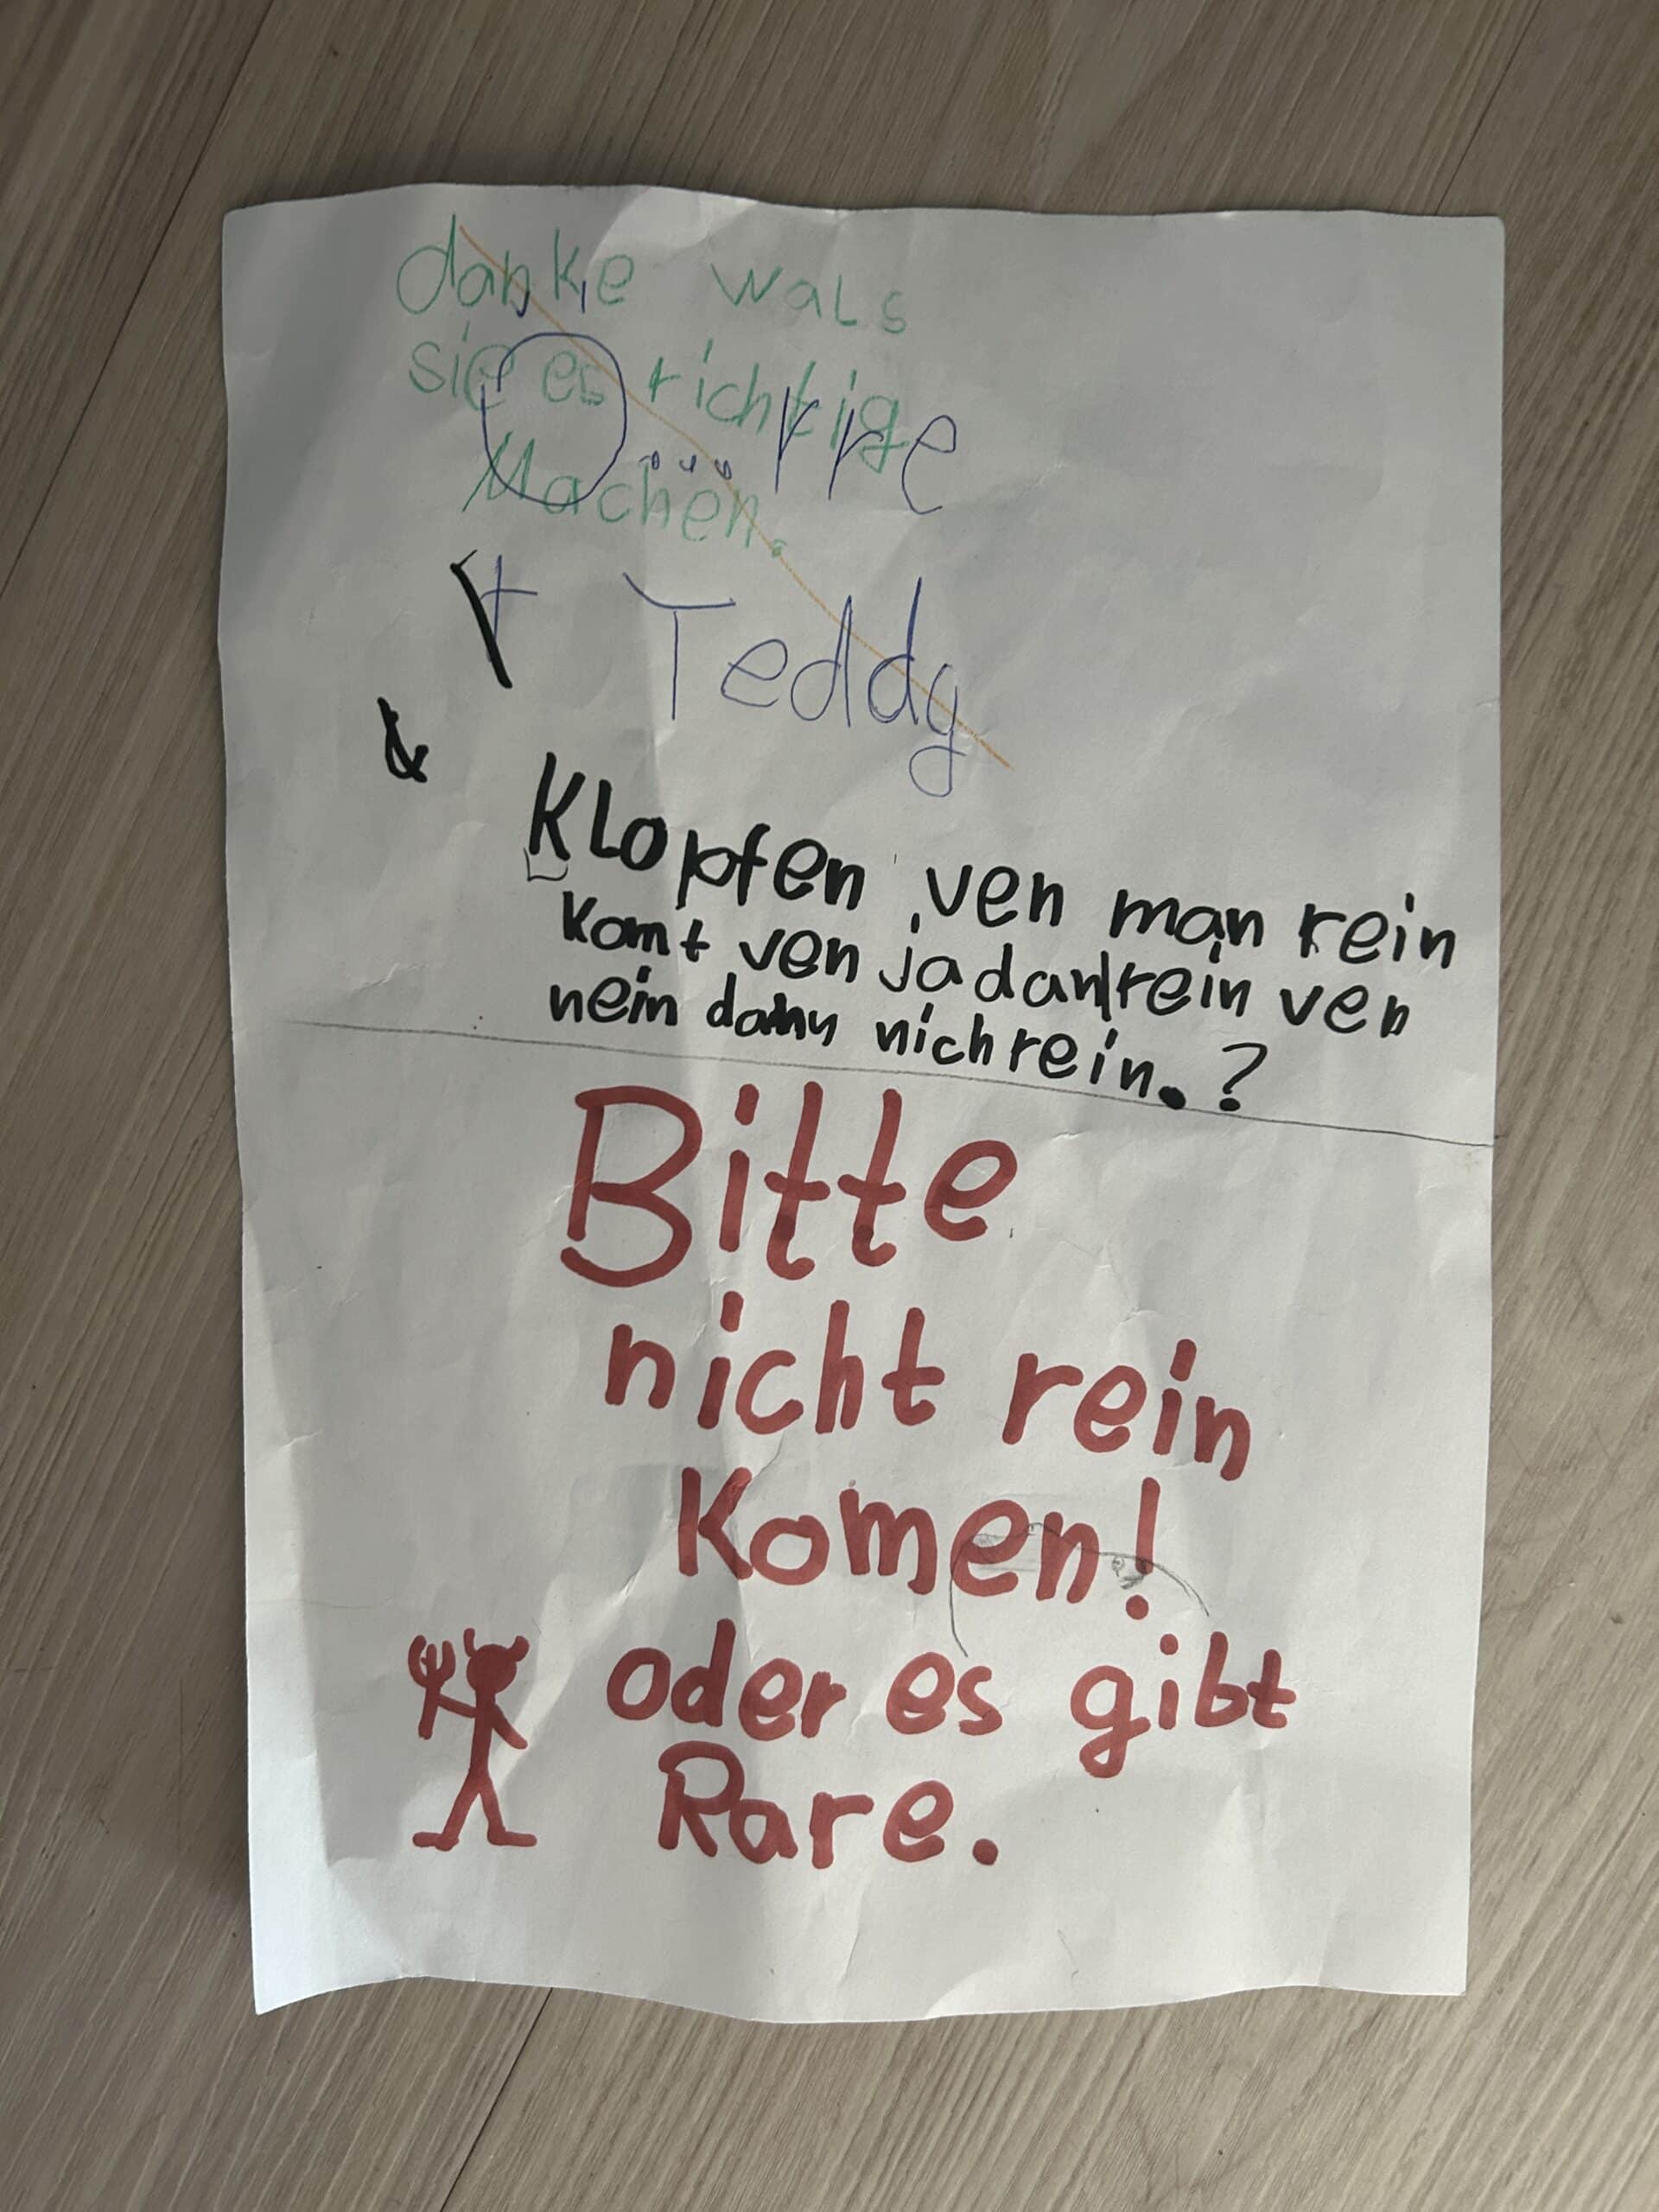 danke wals
sie es richtige
Machen.
Teddy
&
Klopfen ven man rein
komt ven ja dan rein ven
nein dann nich rein. ?
Bitte
nicht rein
Komen!
oder es gibt
Rare.